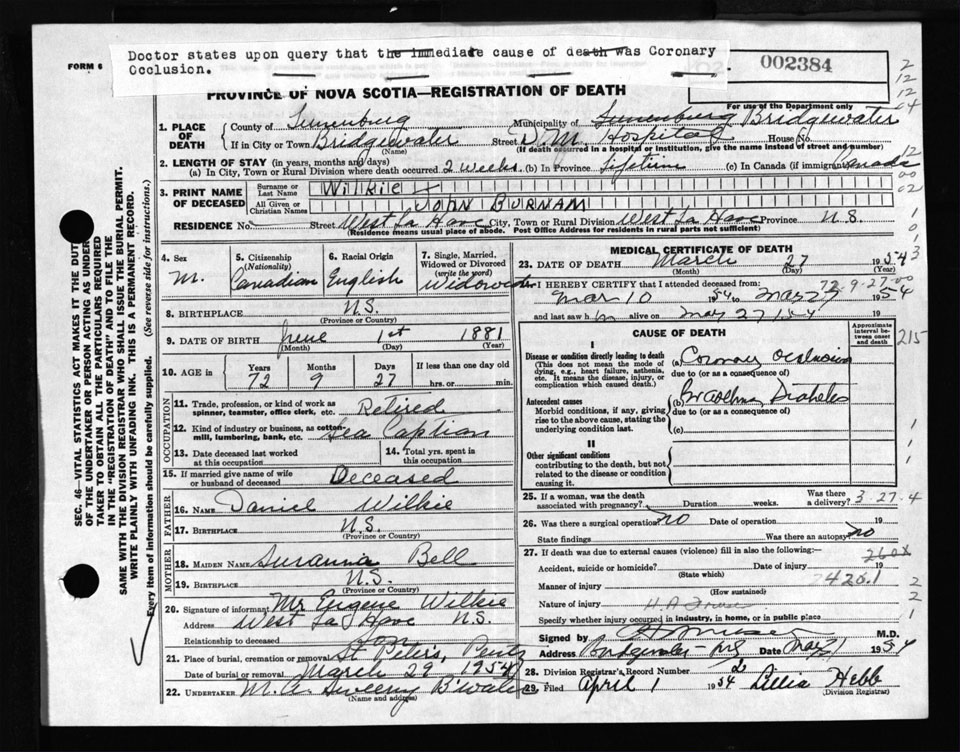 Doctor states upon query that the immediate cause of death was Coronary
Occlusion.
FORM 6
002384
PROVINCE OF NOVA SCOTIA—REGISTRATION OF DEATH
For use of the Department only
2
12
12
64
1. PLACE OF DEATH
County of Lunenburg Municipality of Lunenburg Bridgewater
If in City or Town Bridgewater Street D.M. Hospital House No.
(Name) (If death occurred in a hospital or institution, give its name instead of street and number)
2. LENGTH OF STAY (in years, months and days)
(a) In City, Town or Rural Division where death occurred 2 weeks (b) In Province Lifetime (c) In Canada (if immigrant) Canada
12
00
02
3. PRINT NAME OF DECEASED
Surname or Last Name Wilkie
All Given or Christian Names JOHN BURNAM
RESIDENCE No. Street West La Have City, Town or Rural Division West La Have Province N.S.
(Residence means usual place of abode. Post Office Address for residents in rural parts not sufficient)
4. Sex M.
5. Citizenship (Nationality) Canadian
6. Racial Origin English
7. Single, Married, Widowed or Divorced (write the word) Widower
8. BIRTHPLACE N.S.
(Province or Country)
9. DATE OF BIRTH June 1st 1881
(Month) (Day) (Year)
10. AGE in Years 72 Months 9 Days 27 If less than one day old hrs. or min.
OCCUPATION
11. Trade, profession, or kind of work as spinner, teamster, office clerk, etc. Retired
12. Kind of industry or business, as cotton-mill, lumbering, bank, etc. Sea Captian
13. Date deceased last worked at this occupation
14. Total yrs. spent in this occupation
15. If married give name of wife or husband of deceased Deceased
FATHER
16. Name Daniel Wilkie
17. BIRTHPLACE N.S.
(Province or Country)
MOTHER
18. MAIDEN NAME Susanna Bell
19. BIRTHPLACE N.S.
(Province or Country)
20. Signature of informant Mr Eugene Wilkie
Address West La Have N.S.
Relationship to deceased Son
21. Place of burial, cremation or removal St Peters,
Date of burial or removal March 29 1954
22. UNDERTAKER M. A. Sweeny B'water
(Name and address)
MEDICAL CERTIFICATE OF DEATH
23. DATE OF DEATH March 27 1954
(Month) (Day) (Year)
I HEREBY CERTIFY that I attended deceased from
Mar 10 1954 to Mar 27 1954
72-9-27
and last saw him alive on Mar 27 1954
CAUSE OF DEATH
Approximate interval between onset and death
215
I
Disease or condition directly leading to death
(This does not mean the mode of dying, e.g., heart failure, asthenia, etc. It means the disease, injury, or complication which caused death.)
(a) Coronary occlusion
due to (or as a consequence of)
Antecedent causes
Morbid conditions, if any, giving rise to the above cause, stating the underlying condition last.
(b) Diabetes
due to (or as a consequence of)
(c)
II
Other significant conditions
contributing to the death, but not related to the disease or condition causing it.
25. If a woman, was the death associated with pregnancy? Duration weeks. Was there a delivery?
3-27-4
26. Was there a surgical operation? no Date of operation 19
State findings Was there an autopsy? no
27. If death was due to external causes (violence) fill in also the following:—
Accident, suicide or homicide? Date of injury 19
(State which)
260X
Manner of injury
(How sustained)
420.1
Nature of injury
Specify whether injury occurred in industry, in home, or in public place
Signed by M.D.
Address Bridgewater - NS Date Mar 31 1954
28. Division Registrar's Record Number 2
29. Filed April 1 1954 Lillia Hebb
(Division Registrar)
SEC. 46—VITAL STATISTICS ACT MAKES IT THE DUTY
OF THE UNDERTAKER OR PERSON ACTING AS UNDERTAKER
TO OBTAIN ALL THE PARTICULARS REQUIRED
IN THE "REGISTRATION OF DEATH" AND TO FILE THE
SAME WITH THE DIVISION REGISTRAR WHO SHALL ISSUE THE BURIAL PERMIT.
WRITE PLAINLY WITH UNFADING INK. THIS IS A PERMANENT RECORD.
Every item of information should be carefully supplied. (See reverse side for instructions.)